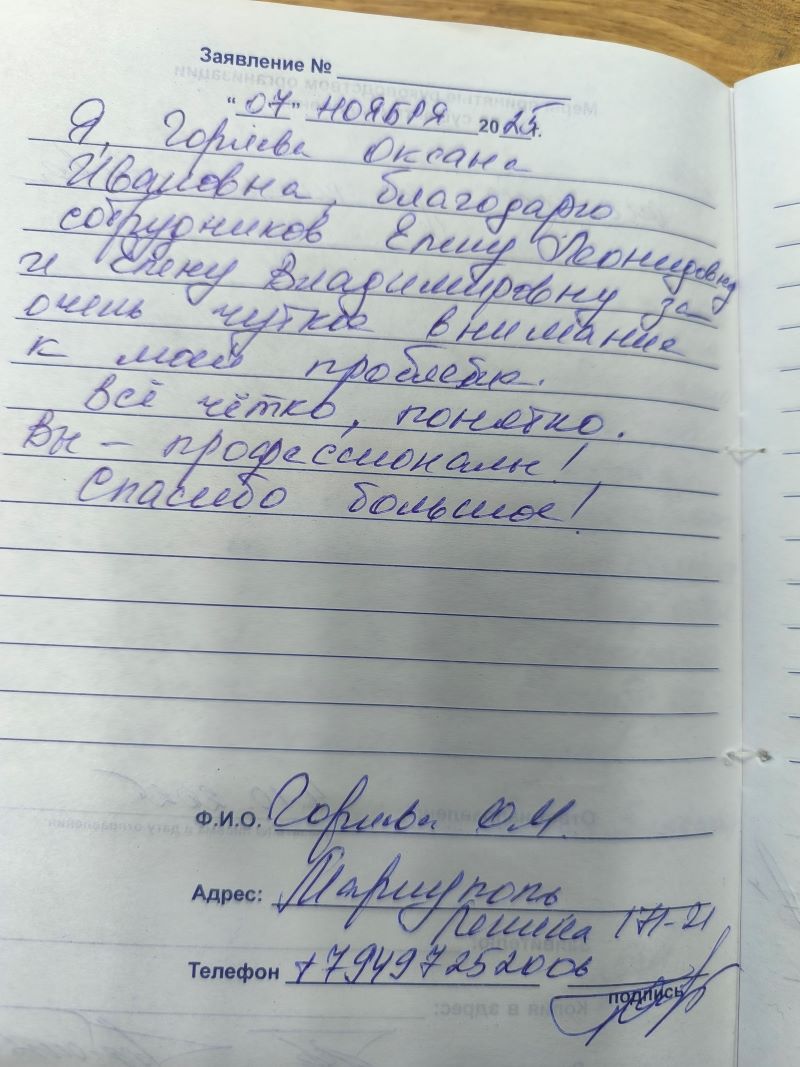 Заявление №
"07" НОЯБРЯ 2025г.
Я, Горяева Оксана
Ивановна, благодарю
сотрудников Елену Леонидовну
и Елену Владимировну за
очень чуткое внимание
к моей проблеме.
Всё чётко, понятно.
Вы – профессионалы!
Спасибо большое!
Ф.И.О.
Адрес: Мариуполь
Ленина
Телефон +79497252006
подпись